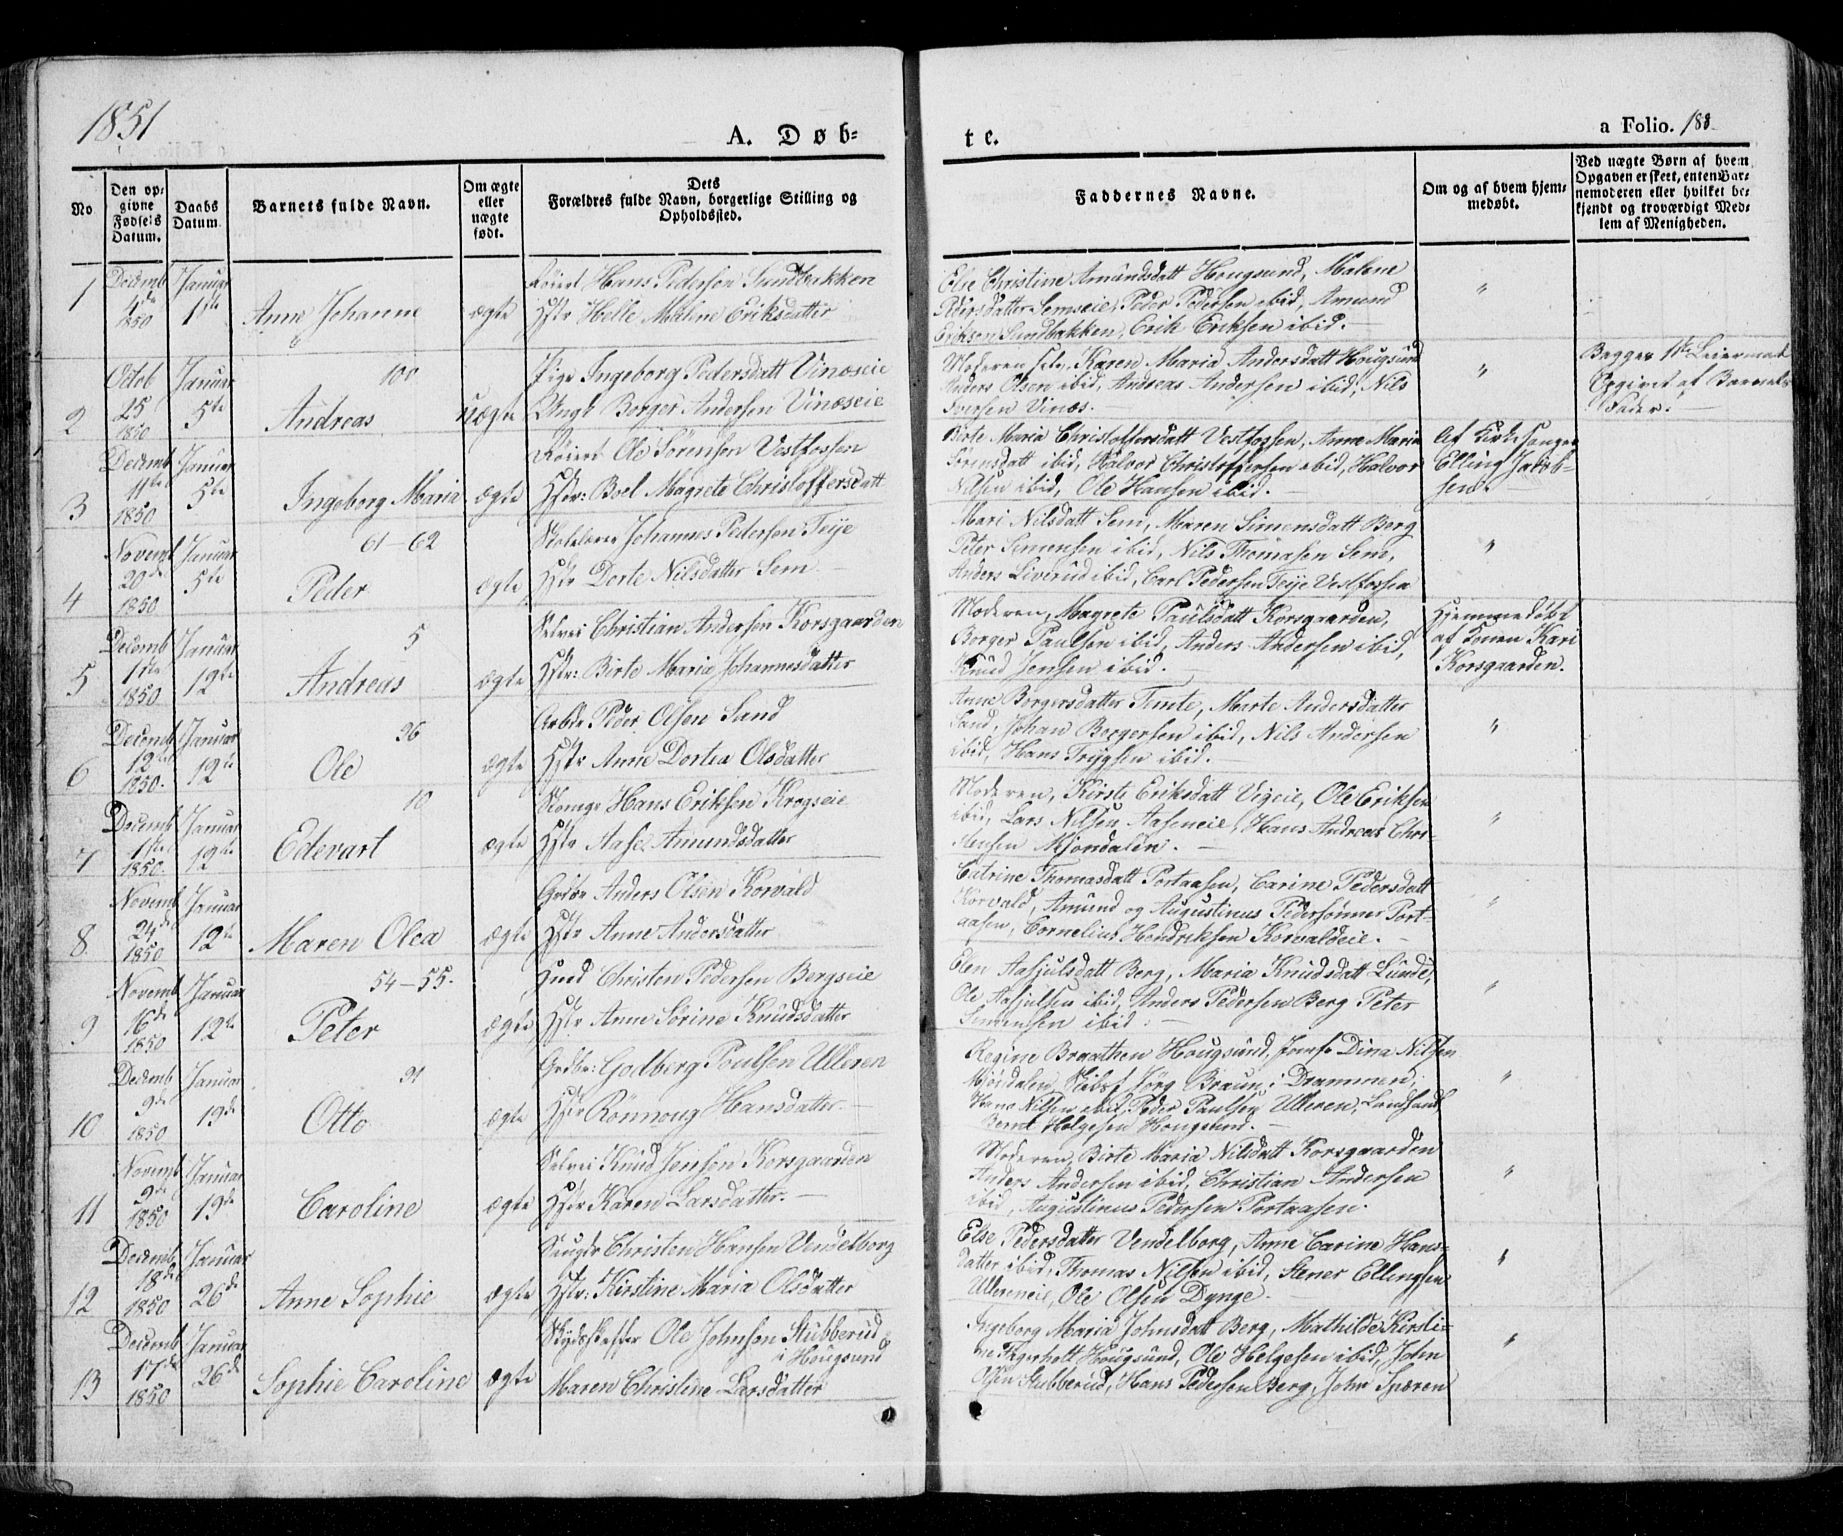 1851
A. Døb-
te.
a Folio. 188.
No
Den op-
givne
Fødsels
Datum.
Daabs
Datum.
Barnets fulde Navn.
Om ægte
eller
uægte
født.
Dets
Forældres fulde Navn, borgerlige Stilling og
Opholdssted.
Faddernes Navne.
Om og af hvem hjem-
medøbt.
Ved uægte Børn af hvem
Opgaven er skeet, enten Bar-
nemoderen eller hvilket be-
kjendt og troværdigt Med-
lem af Menigheden.
1
Decemb
4de
1850
Januar
1ste
Anne Johanne
ægte
Hans Pedersen Sundbakken
Hstr Helle Malene Eriksdatter
Else Christine Amundsdatt Hougsund, Malene
Pedersdatter Semseie, Peder Pedersen ibid, Amund
Eriksen Sundbakken, Erik Eriksen ibid.
"
2
Octob
25
1850
Januar
5te
100
Andreas
uægte
Pige Ingeborg Pedersdatt Vinæseie
Ungk Borger Andersen Vinæseie
Moderen selv, Karen Maria Andersdatt Hougsund
Anders Olsen ibid, Andreas Andersen ibid, Nils
Iversen Vinæs.
"
Begges 1ste Leiermaal
Opgivet af Barnets
Fader.
3
Decemb
11te
1850
Januar
5te
Ingeborg Maria
ægte
Ole Sørensen Vestfossen
Hstr: Boel Magrete Christoffersdatt
Birte Maria Christoffersdatt Vestfossen, Anne Maria
Sørensdatt ibid, Halvor Christoffersen ibid, Halvor
Nilsen ibid, Ole Hansen ibid.
Af Kirkesanger
Elling Jakob-
sen.
4
Novemb
20de
1850
Januar
5te
61-62
Peder
ægte
Skolelærer Johannes Pedersen Teije
Hstr Dorte Nilsdatter Sem
Mari Nilsdatt Sem, Maren Simensdatt Berg
Peter Simensen ibid, Nils Thomasen Sem,
Anders Liverud ibid, Carl Pedersen Teije Vestfossen
"
5
Decemb
1ste
1850
Januar
12te
5
Andreas
ægte
Selvei Christian Andersen Korsgaarden
Hstr: Birte Maria Johannesdatter
Moderen, Magrete Paulsdatt Korsgaarden,
Borger Paulsen ibid, Anders Andersen ibid,
Knud Jensen ibid.
Hjemmedøbt
af Konen Kari
Korsgaarden.
6
Decemb
12te
1850.
Januar
12te
36
Ole
ægte
Peder Olsen Sand
Hstr Anne Dortea Olsdatter
Anne Borgersdatter Temte, Marte Andersdatter
Sand, Johan Borgersen ibid, Nils Andersen
ibid, Hans Trygsen ibid.
"
7
Decemb
1ste
1850.
Januar
12te
10
Edevart
ægte
Hans Eriksen Krogseie
Hstr Aase Amundsdatter
Moderen, Kirste Eriksdatt Vigeie, Ole Eriksen
ibid, Lars Nilsen Aaseneie, Hans Andreas Chri-
stensen Mjøndalen.
"
8.
Novemb
24de
1850
Januar
12te
Maren Olea
ægte
Anders Olsen Korvald
Hstr Anne Andersdatter
Catrine Thomasdatt Portaasen, Carine Pedersdatt
Korvald, Amund og Augustinus Pedersønner Port-
aasen, Cornelius Hendriksen Korvaldeie.
"
9
Novemb
16de
1850
Januar
12te
54-55.
Peter
ægte
Christen Pedersen Bergseie
Hstr Anne Sørine Knudsdatter
Elen Aasjulsdatt Berg, Maria Knudsdatt Lunde,
Ole Aasjulsen ibid, Anders Pedersen Berg Peter
Simensen ibid.
"
10
Decemb
9de
1850
Januar
19de
91
Otto
ægte
Godberg Poulsen Ulleren
Hstr Rønnoug Hansdatter.
Regine Braathen Hougsund, Jomfr Dina Nilsen
Mjøsdalen, Jørg Braun i Drammen,
Hans Nilsen ibid, Peder Paulsen Ulleren,
Bernt Helgesen Hougsund.
"
11
Novemb
9de
1850
Januar
19de
Caroline
ægte
Selvei Knud Jensen Korsgaarden
Hstr Karen Larsdatter.
Moderen, Birte Maria Nilsdatt Korsgaarden
Anders Andersen ibid, Christian Andersen
ibid, Augustinus Pedersen Portaasen.
"
12
Decemb
18de
1850
Januar
26de
Anne Sophie
ægte
Christen Hansen Vendelborg
Hstr: Kirstine Maria Olsdatter
Else Pedersdatter Vendelborg, Anne Carine Hans-
datter ibid, Thomas Nilsen ibid, Stener Ellingsen
Ullereneie, Ole Olsen Dynge.
"
13
Decemb
17de
1850
Januar
26de
Sophie Caroline
ægte
Skydsskaffer Ole Johnsen Stubberud
i Hougsund
Maren Christine Larsdatter
Ingeborg Maria Johnsdatt Berg, Mathilde Kirsti-
ne Hougsund, Ole Helgesen ibid, John
Olsen Stubberud, Hans Pedersen Berg, John Spæren
"